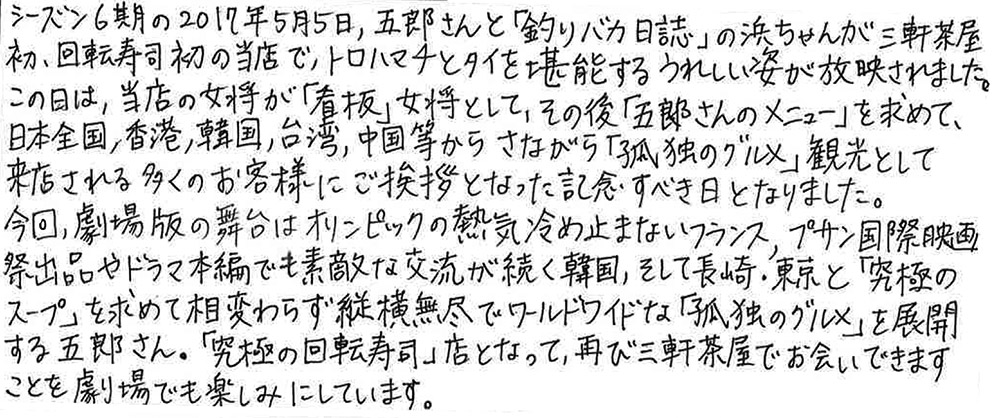 シーズン6期の2017年5月5日,五郎さんと「釣りバカ日誌」の浜ちゃんが三軒茶屋
初、回転寿司初の当店で,トロハマチとタイを堪能するうれしい姿が放映されました。
この日は,当店の女将が「看板」女将として,その後「五郎さんのメニュー」を求めて、
日本全国,香港,韓国,台湾,中国等からさながら「孤独のグルメ」観光として
来店される多くのお客様にご挨拶となった記念すべき日となりました。
今回,劇場版の舞台はオリンピックの熱気冷め止まないフランス,プサン国際映画
祭出品やドラマ本編でも素敵な交流が続く韓国,そして長崎・東京と「究極の
スープ」を求めて相変わらず縦横無尽でワールドワイドな「孤独のグルメ」を展開
する五郎さん。「究極の回転寿司」店となって,再び三軒茶屋でお会いできます
ことを劇場でも楽しみにしています。